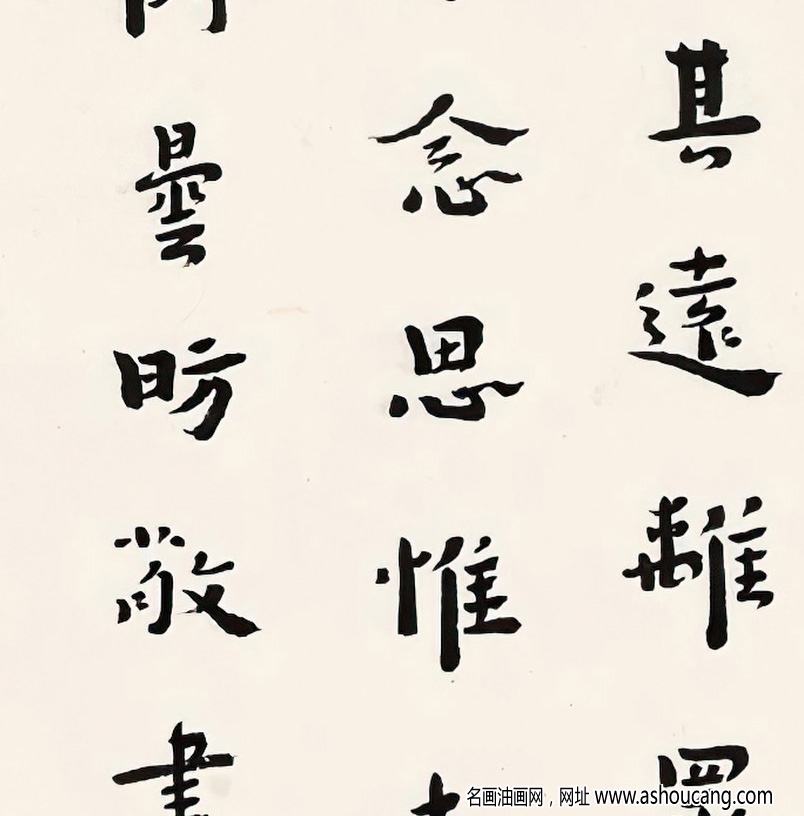 其遠離
念思惟
曇昉敬書
名画油画网，网址 www.ashoucang.com